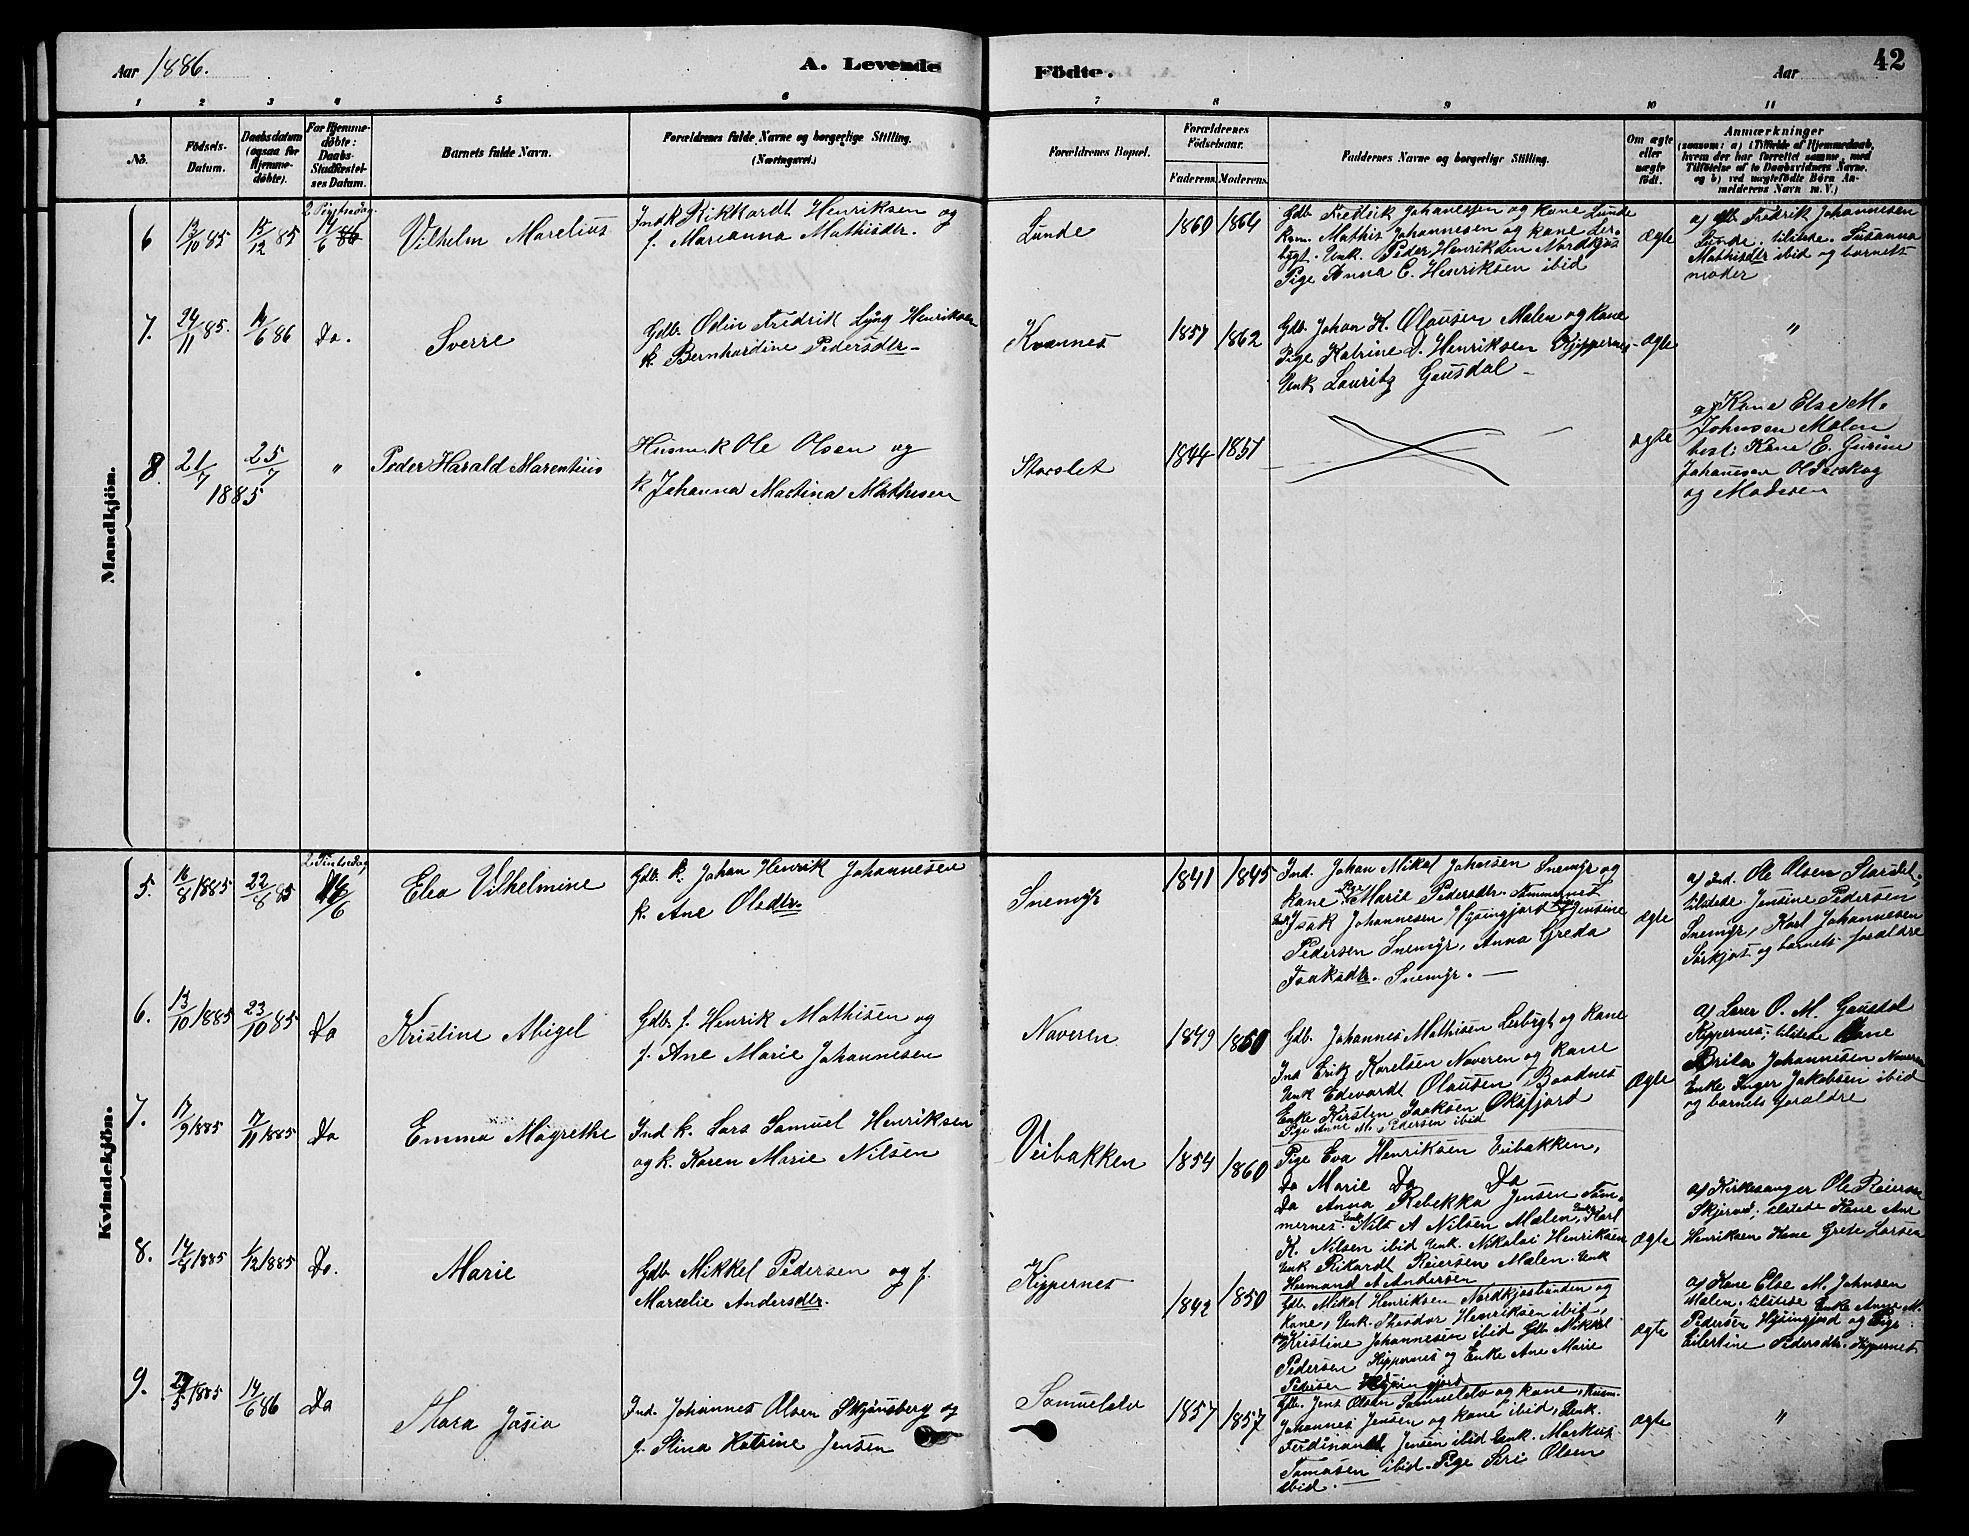 Aar 1886.
A. Levende
Födte.
Aar
42
1 2 3 4 5 6 7 8 9 10 11
No.
Födsels-
Datum.
Daabsdatum
(ogsaa for
Hjemme-
döbte).
For Hjemme-
döbte:
Daabs-
Stadfæstel-
ses Datum.
Barnets fulde Navn.
Forældrenes fulde Navne og borgerlige Stilling.
(Næringsvei.)
Forældrenes Bopæl.
Forældrenes
Födselsaar.
Faderens. Moderens.
Faddernes Navne og borgerlige Stilling.
Om ægte
eller
uægte
födt.
Anmærkninger
(saasom: a) i Tilfælde af Hjemmedaab,
hvem der har forrettet samme, med
Tilföielse af to Daabsvidners Navne,
og b) ved uægtefödte Börn An-
melderens Navn m. V.)
Mandkjön.
6
13/10 85
15/12 85
14/6 86
Vilhelm Marelius
Indk Rikkardt Henriksen og
f. Marianna Mathisdtr.
Lunde
1860 1864
Gdb. Fredrik Johannesen og kone Lunde
Kon. Mathis Johannesen og kone Ler-
bugt. Unk. Peder Henriksen Nordkjos
Pige Anna C. Henriksen ibid
ægte
a) Gdb Fredrik Johannesen
Lunde. tilstede. Susanna
Mathisdtr ibid og barnets
moder
7.
24/11 85.
14/6 86
Do.
Sverre
Gdb. Odin Fredrik Lyng Henriksen
k. Bernhardine Pedersdtr
Kvænnes
1857 1862
Gdb. Johan K. Olausen Mælen og kone
Pige Katrine D. Henriksen Kjippernes
Unk Lauritz Gausdal
ægte
"
8.
21/7 1885
25/7
"
Peder Harald Marentius
Husm. k Ole Olsen og
k Johanna Martina Mathisen
Storslet
1844 1851
ægte
a) Kone Else M.
Johnsen Mælen
best: Kone E. Gurine
Johansen Olderskog
og Moderen
Kvindekjön.
5.
16/8 1885
22/8 85
14/6
Elea Vilhelmine
Gdb. k. Johan Henrik Johannesen
k. Ane Olsdtr.
Snemyr
1841 1845
Ind. Johan Mikal Johnsen Snemyr og
kone Marie Pedersdtr. Tammernes
Isak Johannesen Hysingjord Jensine
Pedersen Snemyr, Anna Greda
Isaksdtr. Snemyr.
ægte
a) Ind. Ole Olsen Storslet.
tilstede Jensine Pedersen
Snemyr, Karl Johannesen
Sørkjos og barnets forældre
6.
13/10 1885
23/10 85
Do
Kristine Abigel
Gdb. f. Henrik Mathisen og
f. Ane Marie Johannesen
Naveren
1849 1850
Gdb. Johannes Mathisen Lerbugt og kone
Ind Erik Karelsen Naveren og kone
Unk Edevardt Olausen Baadnes
Enke Kirsten Isaksen Oksfjord
Pige Anne M. Pedersen ibid
ægte
a) Lærer O. M. Gausdal
Kjippernes; tilstede kone
Brita Johannesen Naveren
Enke Inger Jakobsen ibid
og barnets forældre
7.
17/9 1885
7/11 1885
Do
Emma Magrethe
Ind k. Lars Samuel Henriksen
og k. Karen Marie Nilsen
Veibakken
1854 1860
Pige Eva Henriksen Veibakken,
Do Marie Do Do
Do Anna Rebekka Jensen Tam-
mernes. Nils A Nilsen Mælen, Karl
K. Nilsen ibid Unk. Nikolai Henriksen
Unk Rikardt Reiersen Mælen. Unk
Hermand A Andersen
ægte
a) Kirkesanger Ole Reiersen
Skjervø; tilstede Kone Ane
Henriksen Kone Grete Larsen
8.
1/12 1885
Do.
Marie
Gdb. Mikkel Pedersen og f.
Marcelie Andersdtr.
Kjippernes
1842 1850
Gdb. Mikal Henriksen Nordkjosbunden og
kone, Unk. Theodor Henriksen ibid,
Kristine Johannesen ibid Gdb. Mikkel
Pedersen Kjippernes og Enke Ane Marie
Pedersen Hysingjord
ægte
a) Kone Else M. Johnsen
Mælen. tilstede Enke Anne M.
Pedersen Hysingjord og Pige
Eilertine Pedersdtr. Kjippernes
9.
14/6 86
Do
Sara Josia
Ind. Johannes Olsen Skjønsberg og
f. Stina Katrine Jensen
Samuelelv
1857 1857
Gdb. Jens Olsen Samuelelv og kone, Husm.
Johannes Jensen og kone ibid, Unk.
Ferdinand Jensen ibid Unk. Markus
Tomasen ibid. Pige Siri Olsen
ibid.
ægte
"